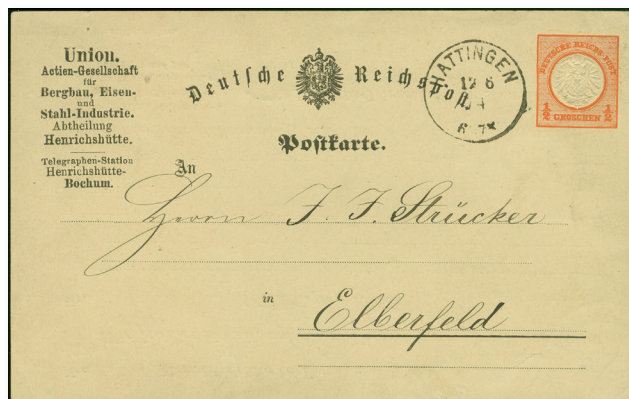 Union.
Actien-Gesellschaft
für
Bergbau, Eisen-
und
Stahl-Industrie.
Abtheilung
Henrichshütte.
Telegraphen-Station
Henrichshütte-
Bochum.
Deutsche Reichspost
HATTINGEN
12 6
4
6 7
DEUTSCHE REICHS-POST
1/2 GROSCHEN 1/2
Postkarte.
An
Herrn J. J. Strücker
in
Elberfeld